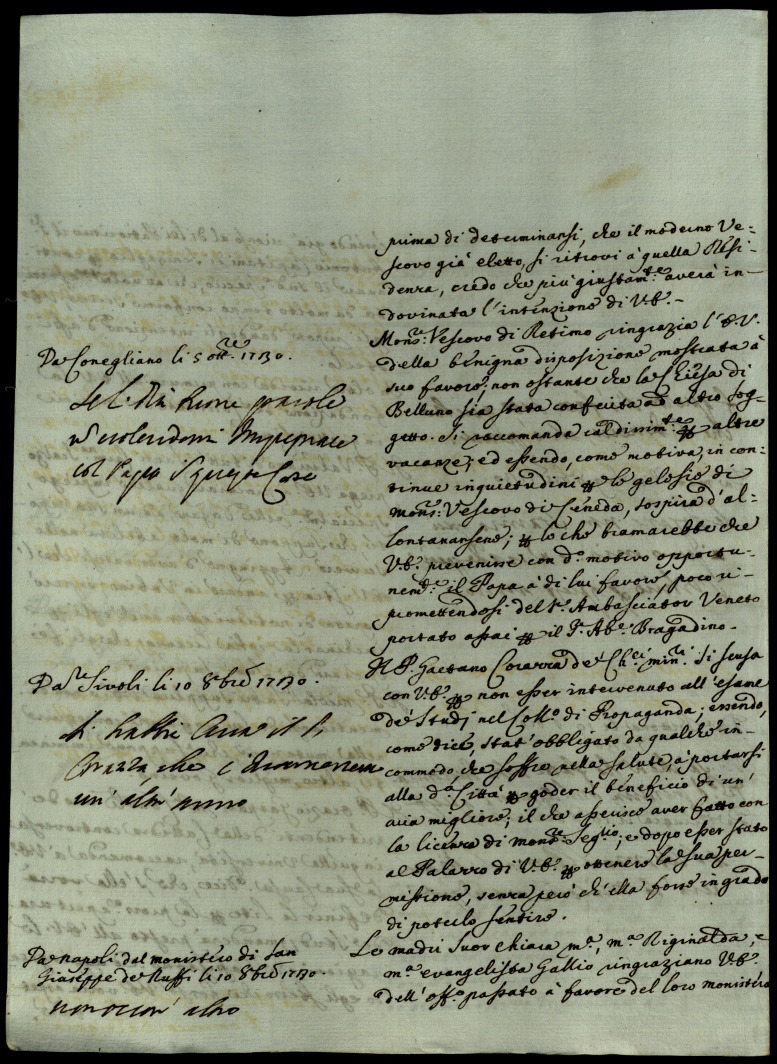 prima di determinarsi, che il moderno Ve=
scovo già eletto, si ritrovi à quella Resi=
denza, credo che più giustam.te averà in=
dovinata l'intenzione di V.E.
Da Conegliano li 5 ott.re 1730.
col Papa
Mons.r Vescovo di Retimo ringrazia l'E.V.
della benigna disposizione mostrata à
suo favore; non ostante che la Chiesa di
Belluno sia stata conferita ad altro sog=
getto. Si raccomanda caldissim.te altre
vacanze; ed essendo, come motiva, in con=
tinue inquietudini le gelosie di
Mons.r Vescovo di Ceneda, sospira d'al=
lontanarsene; lo che bramarebbe che
V.E. prevenisse con d.o motivo opportu=
nem.te il Papa à di lui favore, poco ri=
promettendosi del S.r Ambasciator Veneto
portato assai il S.r Ab.e Bragadino.
Da Tivoli li 10 8bre 1730.
un' altr' anno
Il P. Gaetano de' Ch.ci min.ri si scusa
con V.E. non esser intervenuto all'esame
de' Studj nel Coll.o di Propaganda; essendo,
come dice, stat' obbligato da qualche in=
commodo, che soffre nella salute, à portarsi
alla d.a Città goder il beneficio di un'
aria migliore; il che asserisce aver fatto con
la licenza di mons.r Seg.rio; e dopo esser stato
al Palazzo di V.E. ottenere la sua per=
missione, senza però ch'ella fosse in grado
di poterlo sentire.
Da Napoli dal monistero di San
Giuseppe de' Ruffi li 10 8bre 1730.
non occorr' altro
Le madri Suor Chiara m.a, m.a Riginalda, e
m.a evangelista Gallio ringraziano V.E.
dell' off.o passato à favore del loro monistero